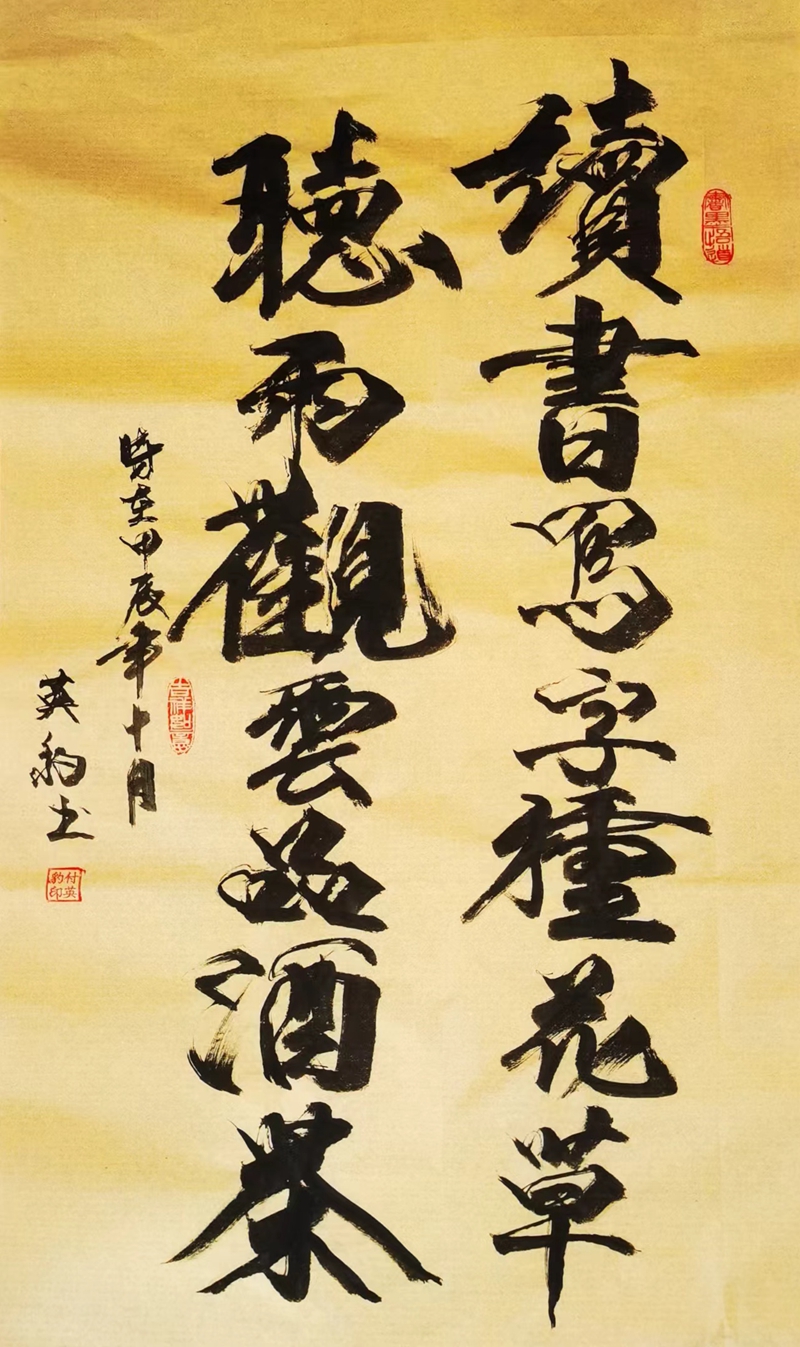 讀書寫字種花草
聽雨觀雲品酒茶
时在甲辰年十月
英豹书
吉祥如意
付英豹印